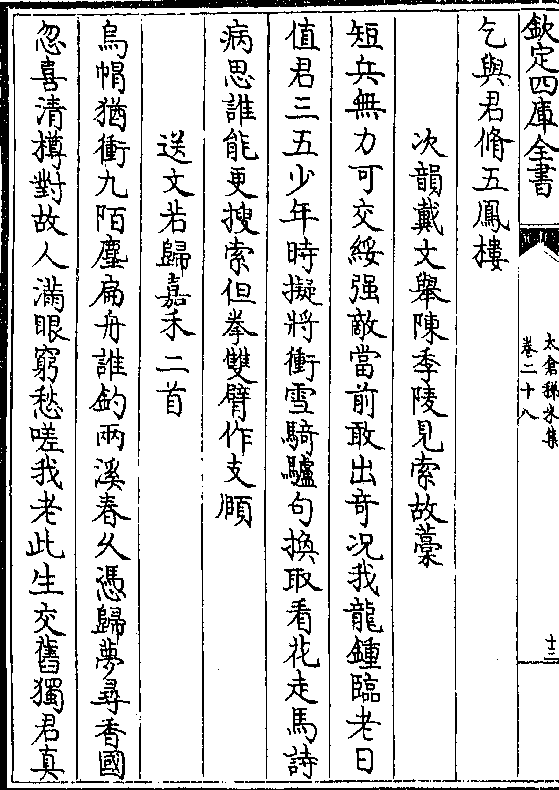 欽定四庫全書
太倉稊米集
卷二十八
十三
乞與君脩五鳳樓
次韻戴文舉陳季陵見索故藁
短兵無力可交綏强敵當前敢出奇况我龍鍾臨老日
值君三五少年時擬將衝雪騎驢句換取看花走馬詩
病思誰能更搜索但拳雙臂作支頥
送文若歸嘉禾二首
烏帽猶衝九陌塵扁舟誰釣兩溪春久憑歸夢尋香國
忽喜清樽對故人滿眼窮愁嗟我老此生交舊獨君真